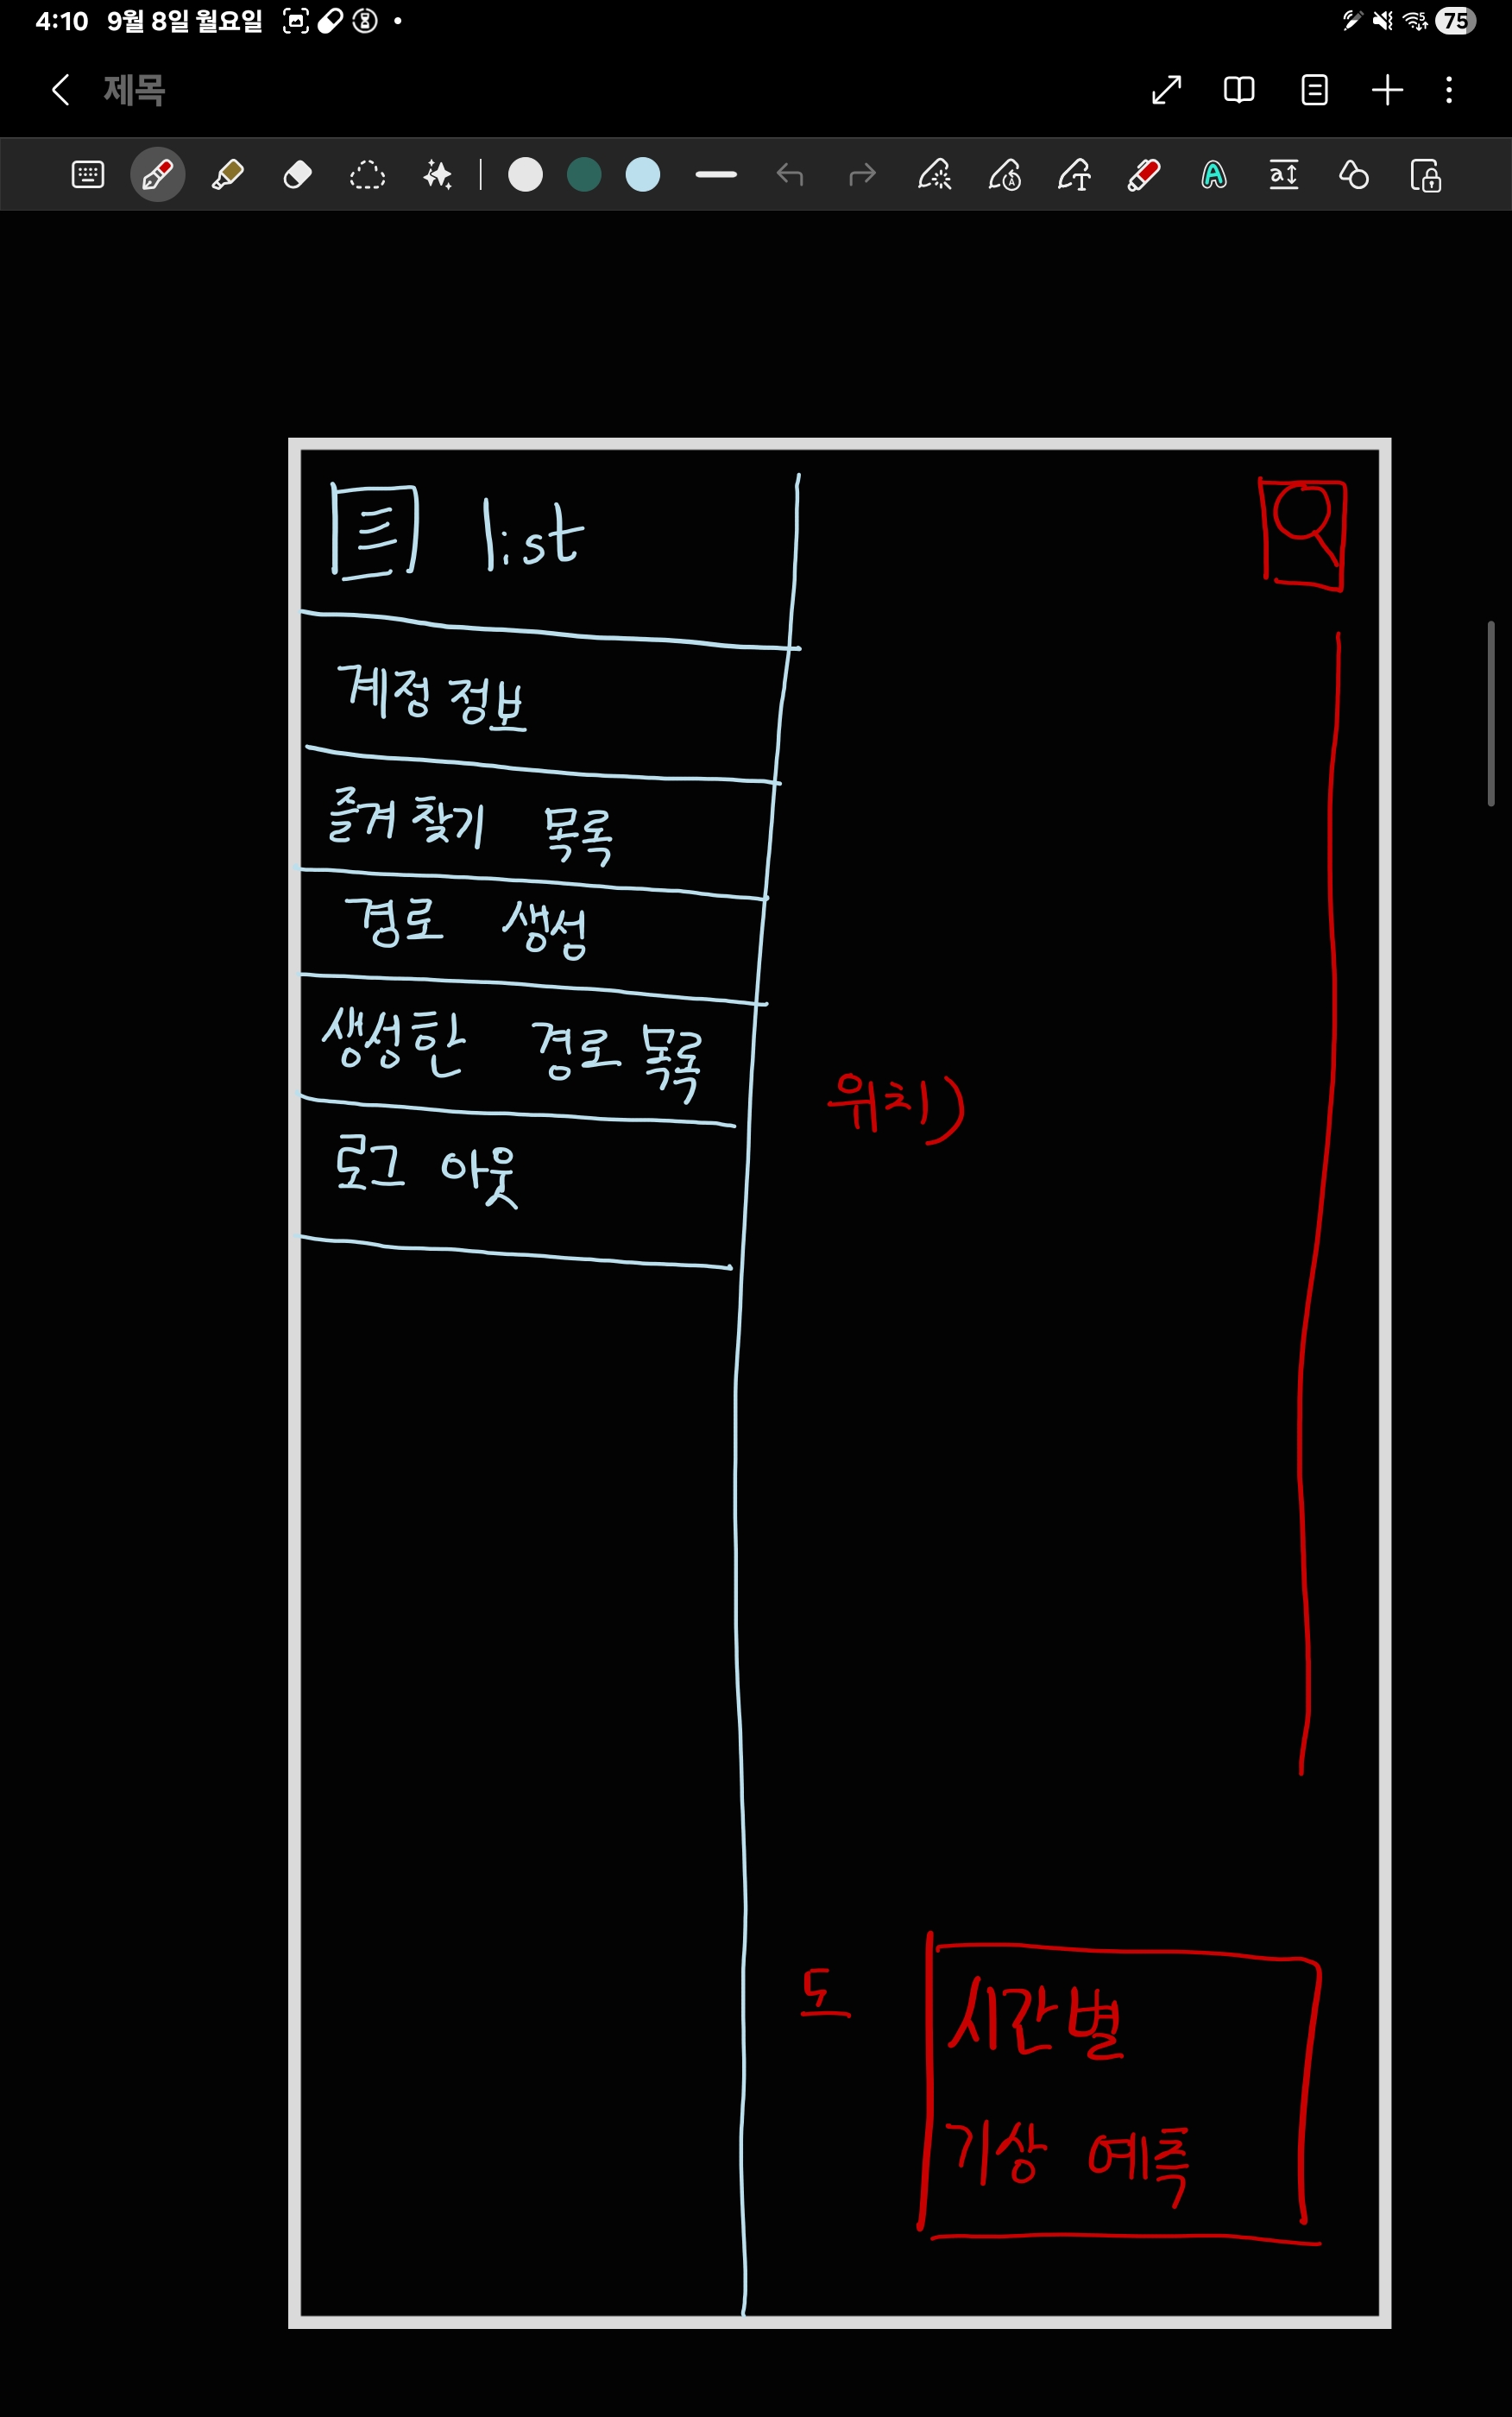 4:10 9월 8일 월요일 75
제목
list
계정 정보
즐겨 찾기 목록
경로 생성
생성한 경로 목록
위치)
로그 아웃
도
시간별
기상 예측